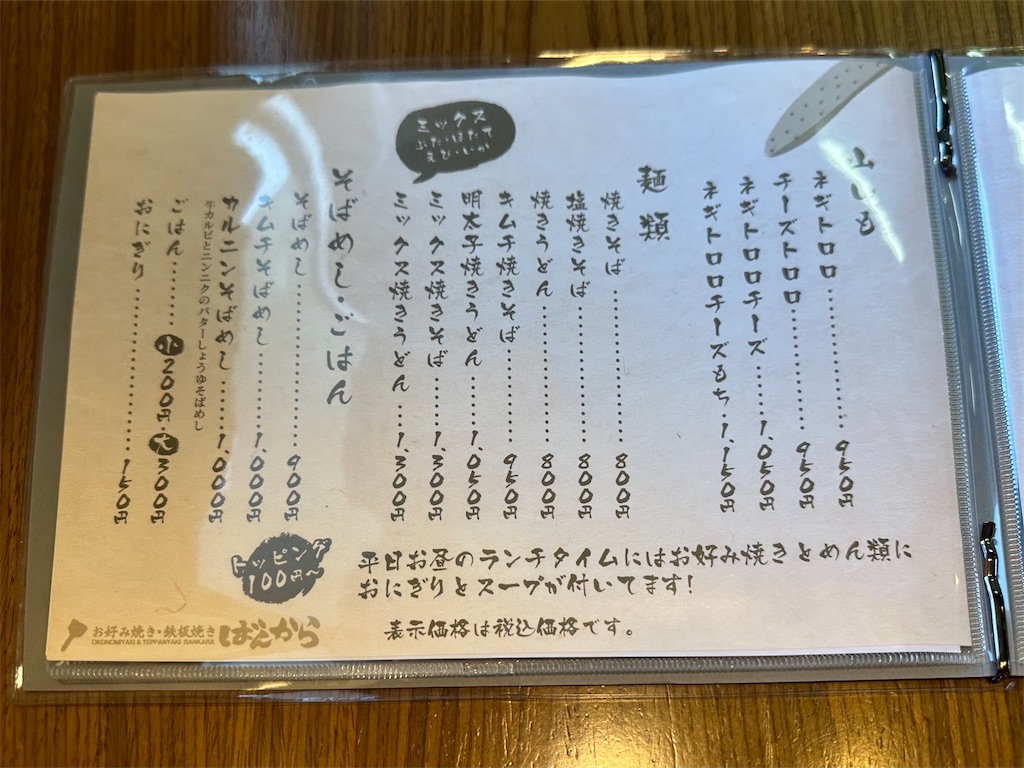 山いも
ネギトロロ……………950円
チーズトロロ…………950円
ネギトロロチーズ……1,050円
ネギトロロチーズもち…1,150円
麺類
焼きそば………………800円
塩焼きそば……………800円
焼きうどん……………800円
キムチ焼きそば………950円
明太子焼きうどん……1,050円
ミックス焼きそば……1,300円
ミックス焼きうどん…1,300円
ミックス
ぶた・ほたて
えび・いか
そばめし・ごはん
そばめし………………900円
キムチそばめし………1,000円
カルニンそばめし……1,000円
牛カルビとニンニクのバターしょうゆそばめし
ごはん………小200円・大300円
おにぎり………………150円
トッピング
100円〜
平日お昼のランチタイムにはお好み焼きとめん類に
おにぎりとスープが付いてます!
表示価格は税込価格です。
お好み焼き・鉄板焼き ばんから
OKONOMIYAKI & TEPPANYAKI BANKARA